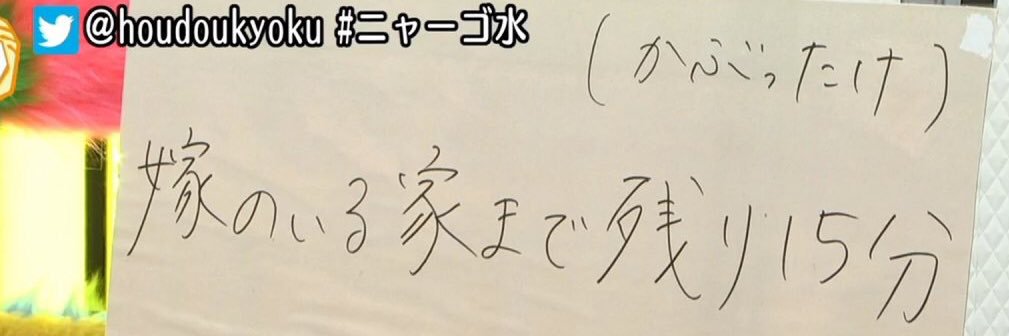 @houdoukyoku #ニャーゴ水
(かぶったけ)
嫁のいる家まで残り15分